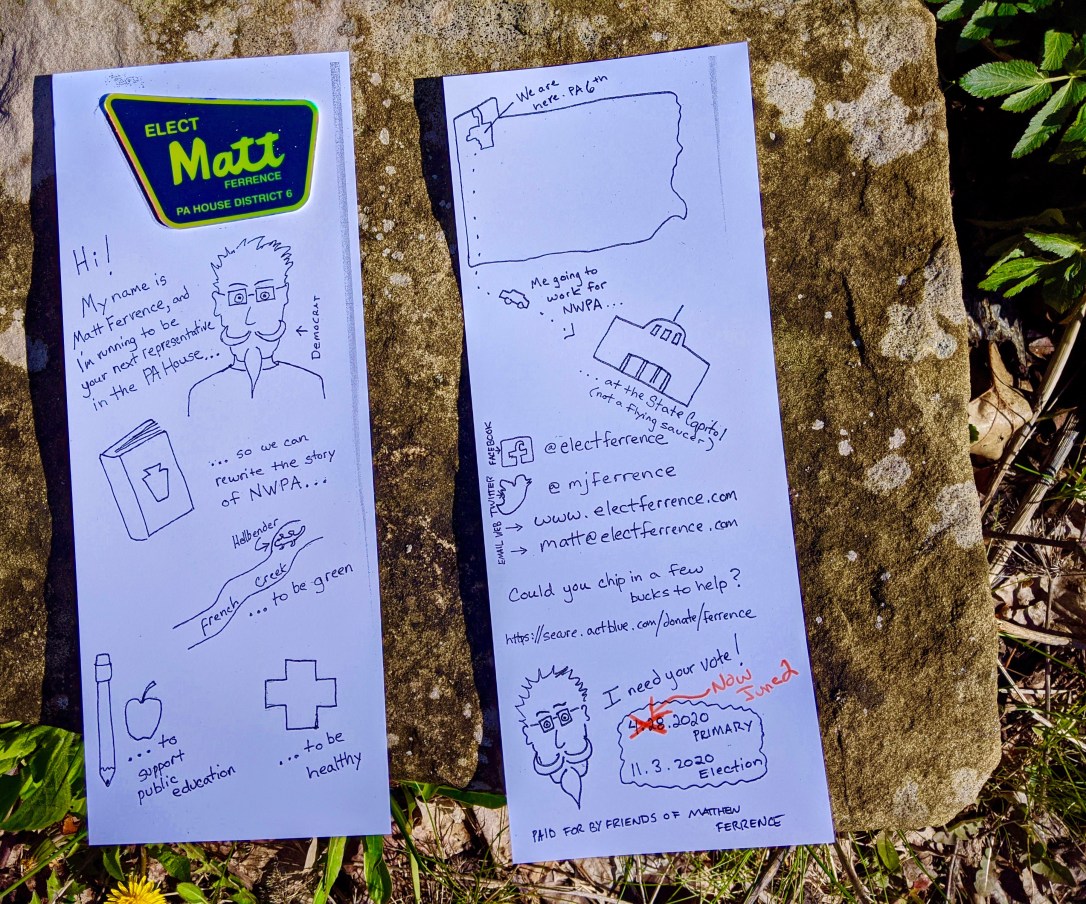 ELECT
Matt
FERRENCE
PA HOUSE DISTRICT 6
Hi!
My name is
Matt Ferrence, and
I'm running to be
your next representative
in the PA House...
← DEMOCRAT
... so we can
rewrite the story
of NWPA...
Hellbender
French Creek
... to be green
... to
support
public education
... to be
healthy
We are
here. PA 6th
Me going to
work for
NWPA...
... at the State Capitol
(not a flying saucer)
FACEBOOK
@electferrence
TWITTER
@mjferrence
WEB → www.electferrence.com
EMAIL → matt@electferrence.com
Could you chip in a few
bucks to help?
https://secure.actblue.com/donate/ferrence
I need your vote!
Now
June 2
4.28.2020
PRIMARY
11.3.2020
Election
PAID FOR BY FRIENDS OF MATTHEW
FERRENCE